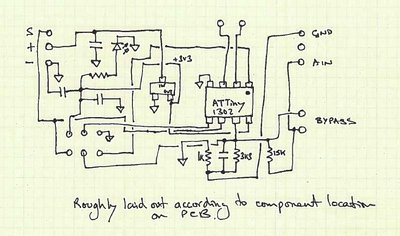 S
+
-
+3v3
IN
GND
AIN
ATTiny
1302
BYPASS
1k
3k3
15k
Roughly laid out according to component location
on PCB.